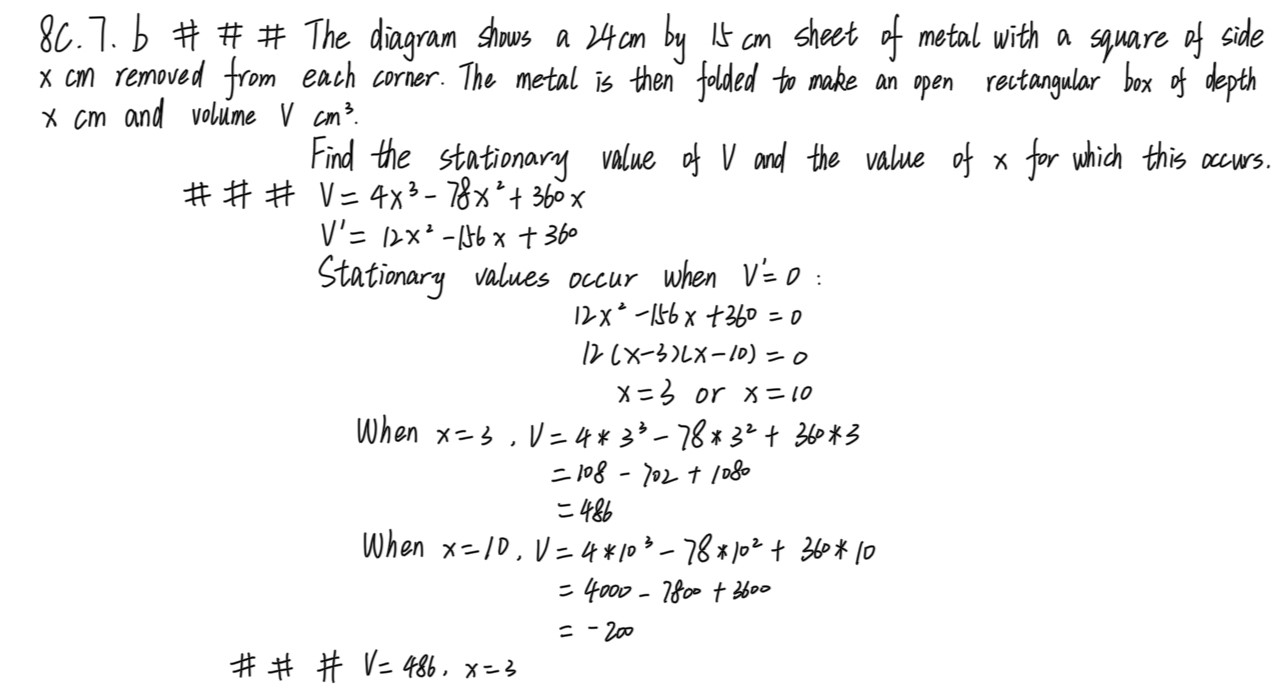 8C.7.b # # # The diagram shows a 24cm by 15 cm sheet of metal with a square of side
x cm removed from each corner. The metal is then folded to make an open rectangular box of depth
x cm and volume V cm³.
Find the stationary value of V and the value of x for which this occurs.
# # # V = 4x³ - 78x² + 360x
V' = 12x² - 156x + 360
Stationary values occur when V' = 0 :
12x² - 156x + 360 = 0
12(x-3)(x-10) = 0
x = 3 or x = 10
When x = 3 , V = 4 * 3³ - 78 * 3² + 360 * 3
= 108 - 702 + 1080
= 486
When x = 10 , V = 4 * 10³ - 78 * 10² + 360 * 10
= 4000 - 7800 + 3600
= -200
# # # V = 486 , x = 3